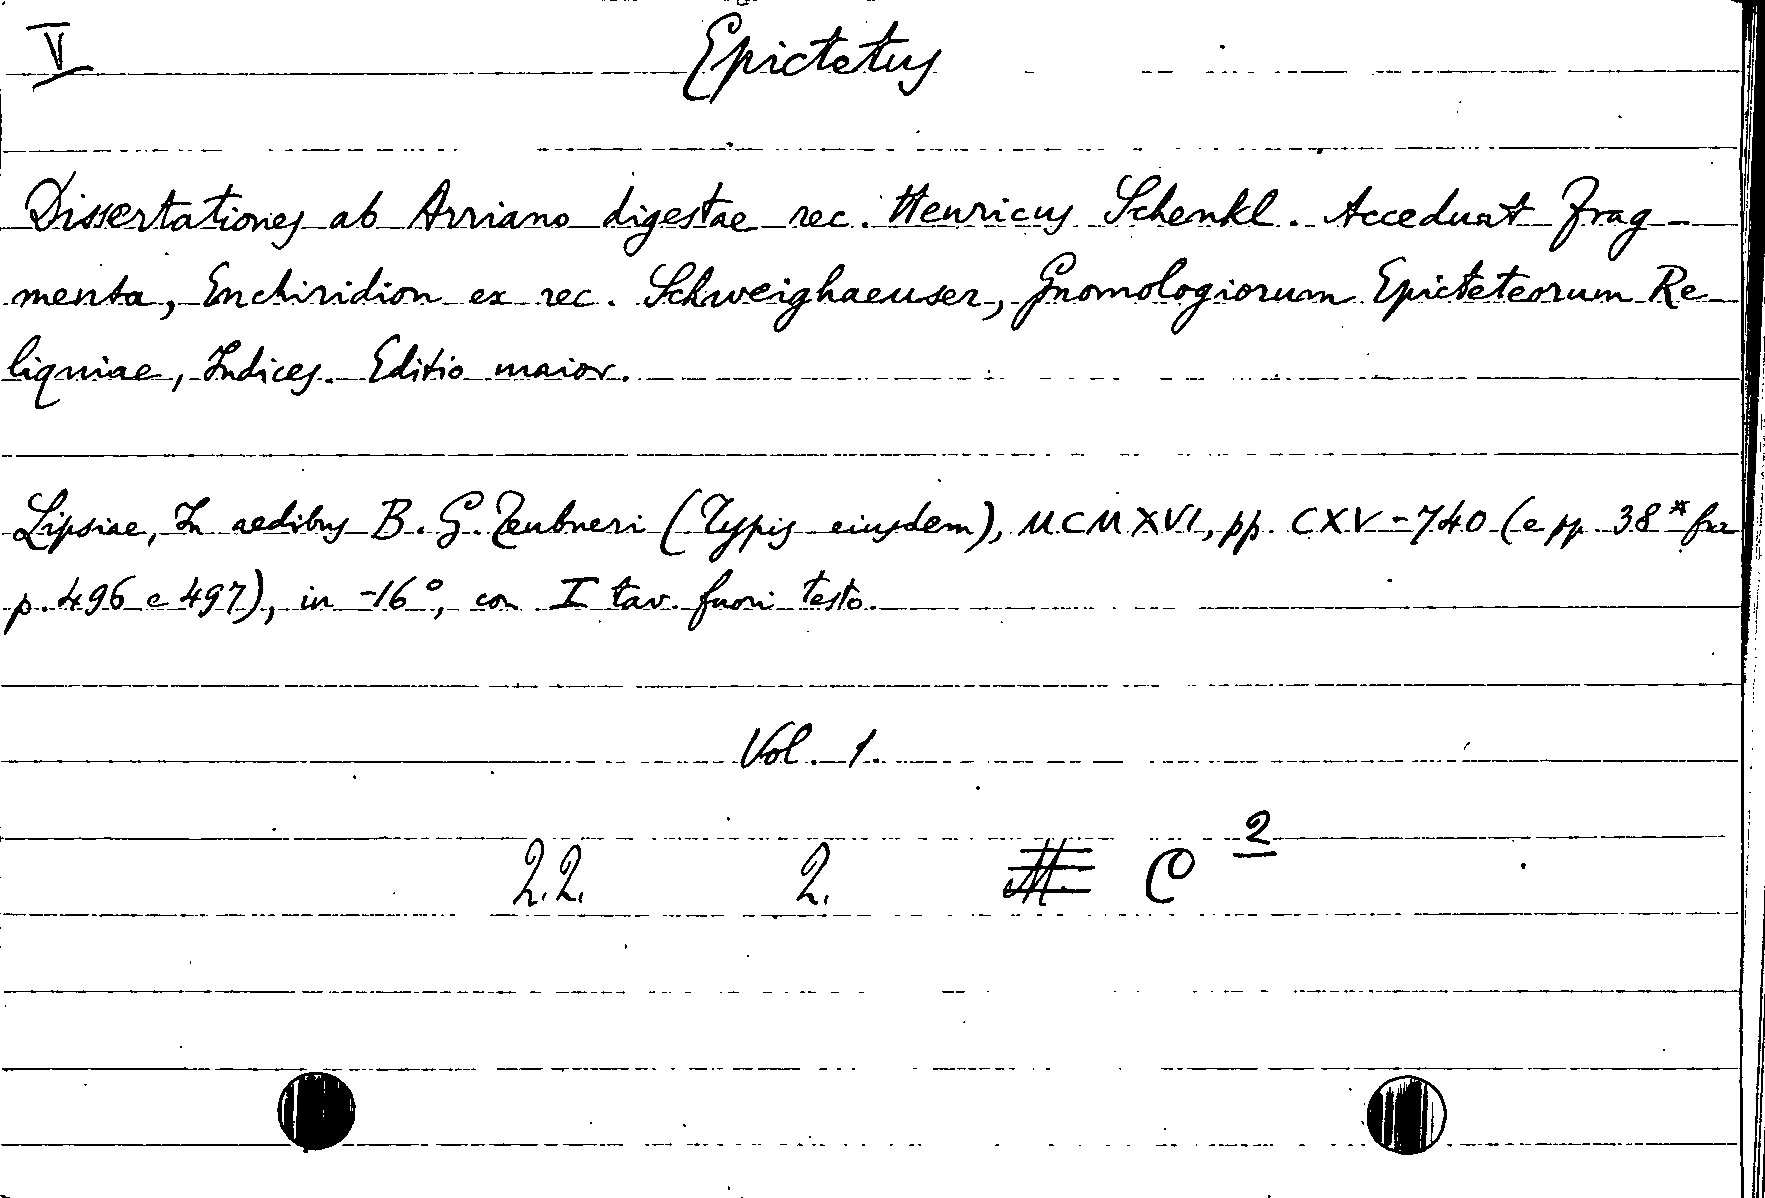 V
Epictetus
Dissertationes ab Arriano digestae rec. Henricus Schenkl. Accedunt Frag-
menta, Enchiridion ex rec. Schweighaeuser, Gnomologiorum Epicteteorum Re-
liquiae, Indices. Editio maior.
Lipsiae, In aedibus B. G. Teubneri (Typis eiusdem), MCMXVI, pp. CXV-740 (e pp. 38* fra
p. 496 e 497), in -16°, con I tav. fuori testo.
Vol. 1.
2.2. 2. C 2